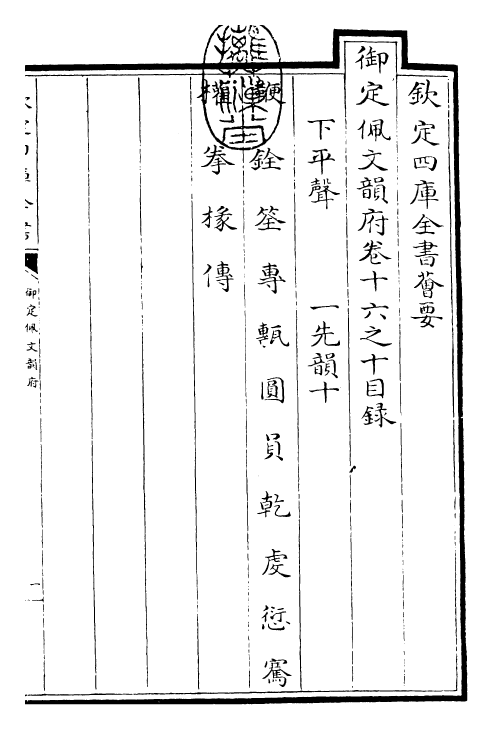 欽定四庫全書薈要
御定佩文韻府卷十六之十目録
下平聲 一先韻十
鞭銓筌專甎圓員乾虔愆騫
權拳椽傳
御定佩文韻府
一